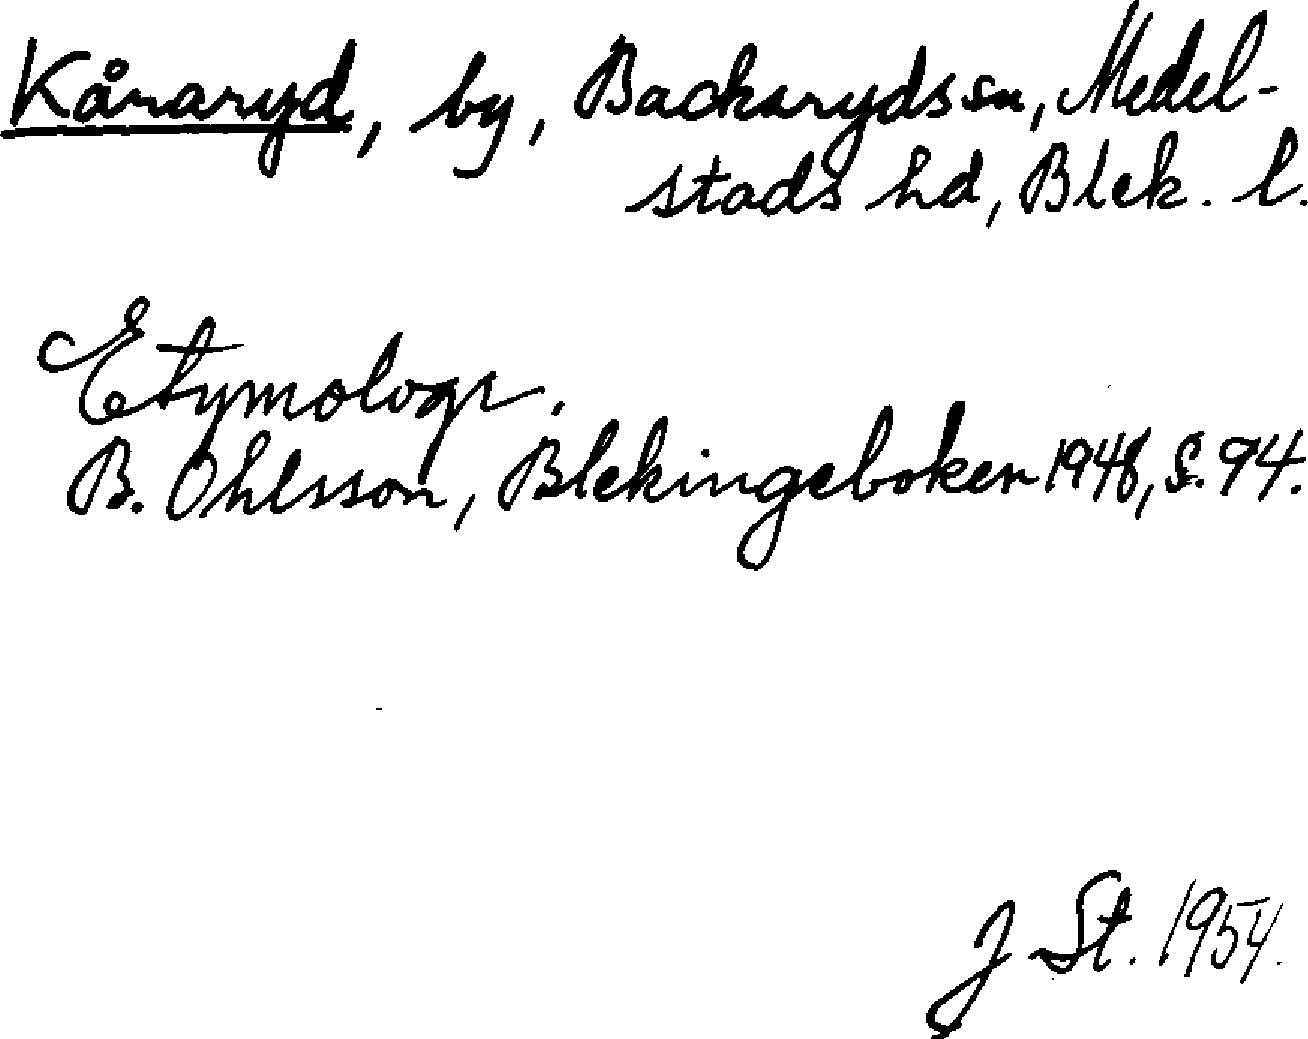 Kåraryd, by, Backaryds sn, Medel-
stads hd, Blek. l.
Etymologi.
B. Ohlsson, Blekingeboken 1948, S. 94.
J St. 1954.